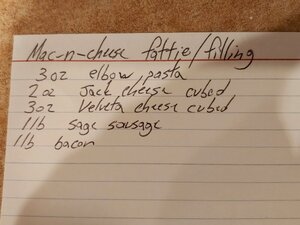 Mac-n-cheese fattie/filling
3oz elbow pasta
2oz Jack cheese cubed
3oz Velveta cheese cubed
1lb sage sausage
1lb bacon